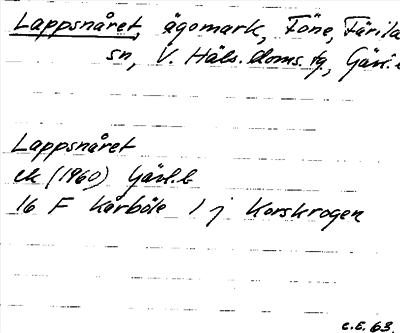 Lappsnåret, ägomark, Föne, Färila
sn, V. Häls. doms. tg, Gävl. l
Lappsnåret
ek (1960) Gävl. l
16 F Kårböle 1 j Korskrogen
C.E. 63.